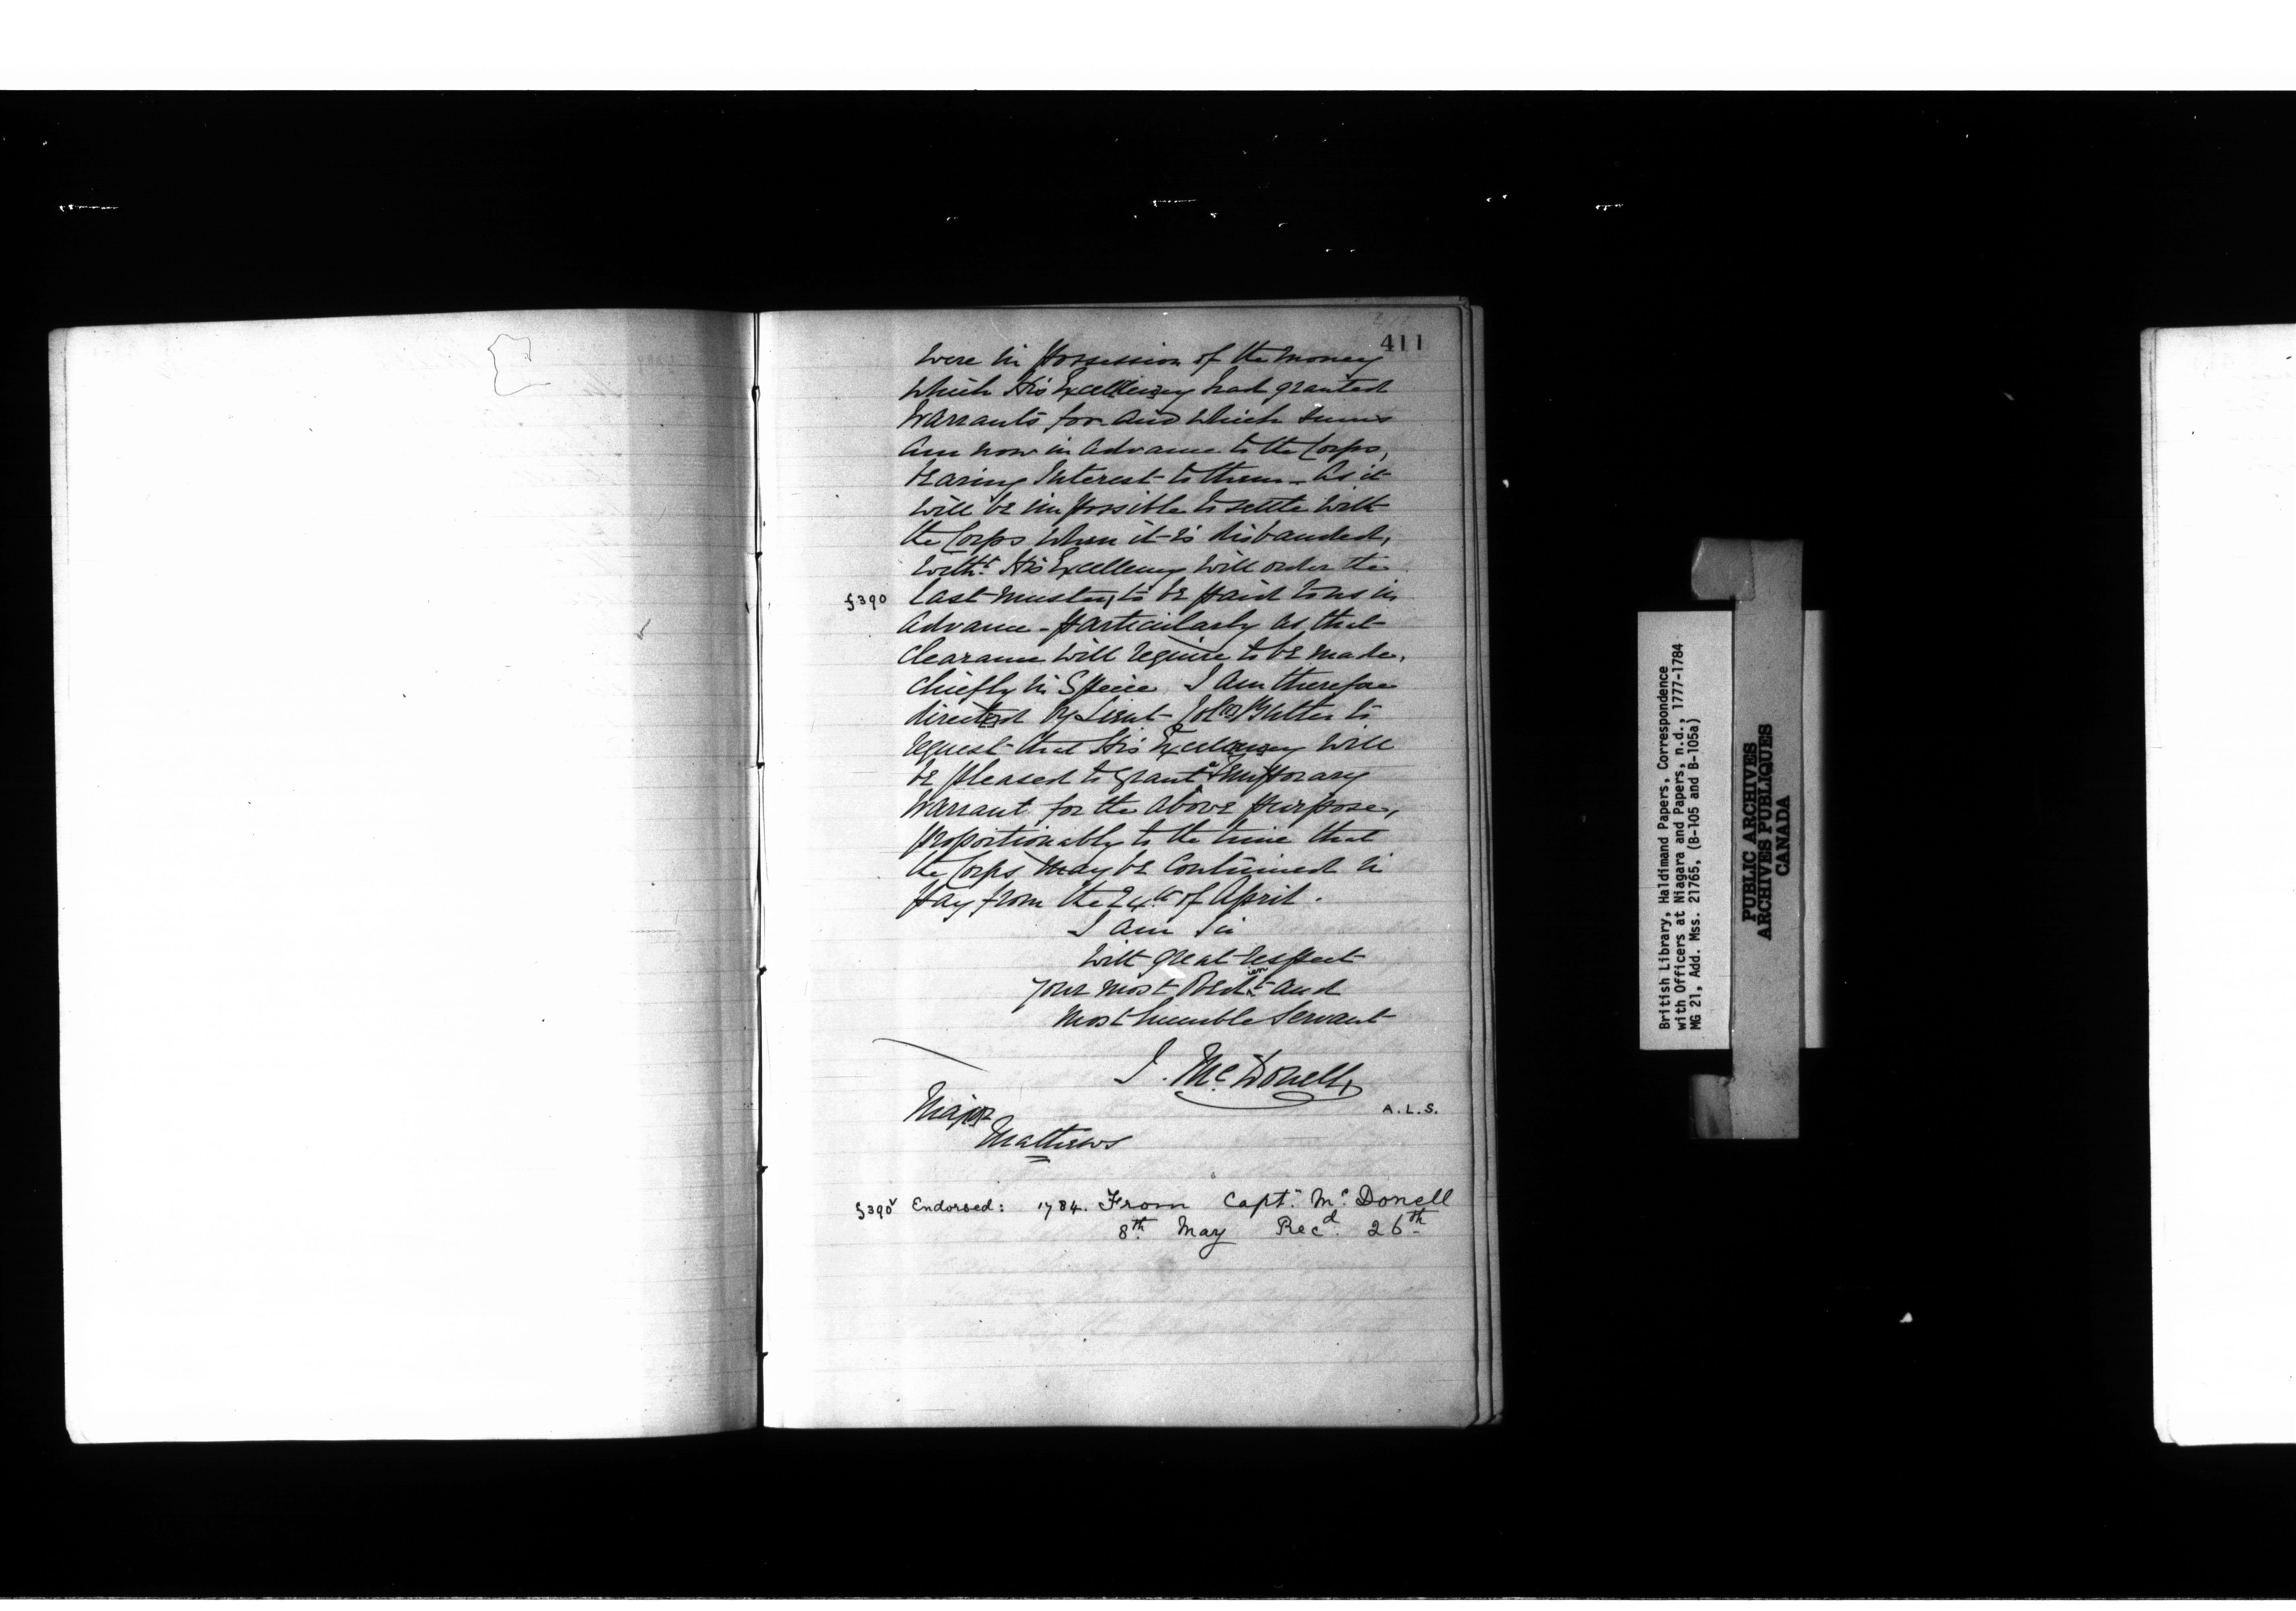 411
were in possession of the money
which His Excellency had granted
Warrants for and which sums
am now in advance to the Corps,
bearing Interest to them - As it
will be impossible to settle with
the Corps when it is disbanded,
with.t His Excellency will order the
f390 last muster, to be paid to us in
advance - particularly as that
clearance will require to be made,
chiefly in Specie I am therefore
directed by Lieut- Col. Butler to
request that His Excellency will
be pleased to grant a temporary
Warrant for the above purpose,
proportionably to the time that
the Corps may be continued in
pay from the 24th of April.
I am Sir
with great respect
your most Obedient and
most humble Servant
J. McDonell,
A.L.S.
Major
Mathews
f390v Endorsed: 1784. From Capt.n Mc Donell
8th May Recd. 26th
British Library, Haldimand Papers, Correspondence
with Officers at Niagara and Papers, n.d., 1777-1784
MG 21, Add. Mss. 21765, (B-105 and B-105a)
PUBLIC ARCHIVES
ARCHIVES PUBLIQUES
CANADA